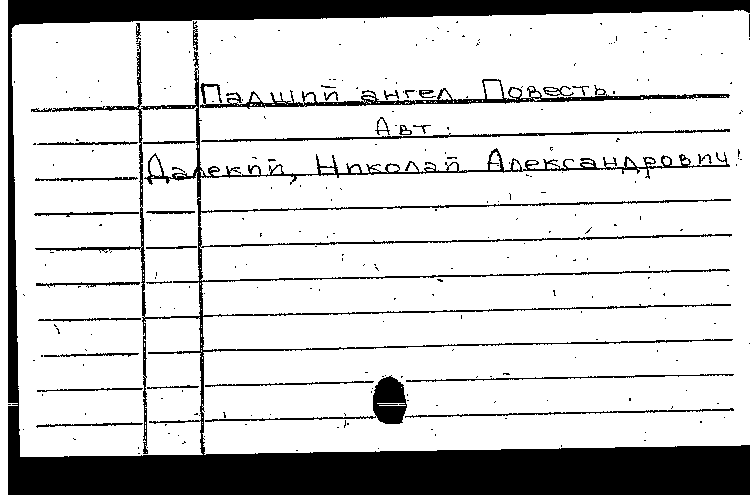 Падший ангел. Повесть.
Авт.:
Далекий, Николай Александрович.